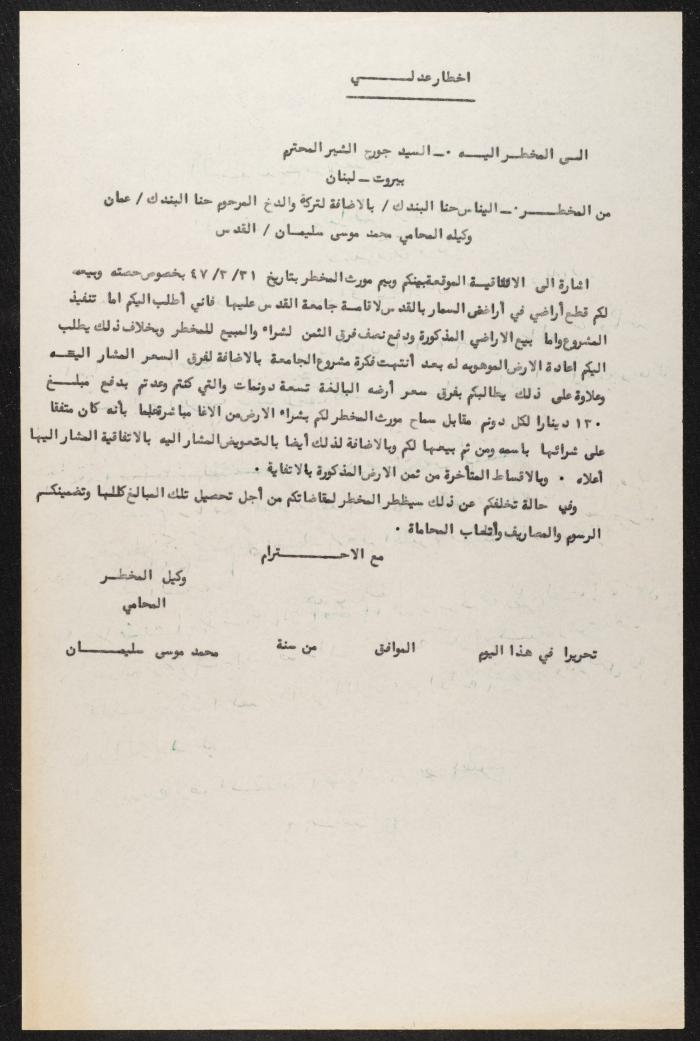 اخطار عدلـــــــي
الــى المخطــر اليــه ٠ ــ السيد جورج الشبر المحترم
بيروت ــ لبنان
من المخطـــــر ٠ ــ الياس حنا البندك / بالاضافة لتركة والدخ المرحوم حنا البندك / عمان
وكيله المحامي محمد موسى سليمان / القدس
اشارة الى الاتفاقية الموقعة بينكم وبيم مورث المخطر بتاريخ ٤٧/٣/٣١ بخصوص حصته وبيعه
لكم قطع أراضي في أراضي السمار بالقدس لاقامة جامعة القدس عليها فاني أطلب اليكم اما تنفيذ
المشروع واما بيع الاراضي المذكورة ودفع نصف فرق الثمن لشراء والمبيع للمخطر وبخلاف ذلك يطلب
اليكم اعادة الارض الموهوبه له بعد أنتهت فكرة مشروع الجامعة بالاضافة لفرق السعر المشار اليــه
وعلاوة على ذلك يطالبكم بفرق سعر أرضه البالغة تسعة دونمات والتي كنتم وعدتم بدفع مبلــغ
١٣٠ دينارا لكل دونم مقابل سماح مورث المخطر لكم بشراء الارض من الاغا مباشرة علما بأنه كان متفقا
على شرائها باسمه ومن ثم بيعها لكم وبالاضافة لذلك أيضا بالتعويض المشار اليه بالاتفاقية المشار اليها
أعلاه ٠ وبالاقساط المتأخرة من ثمن الارض المذكورة بالاتفاية ٠
وفي حالة تخلفكم عن ذلك سيظطر المخطر لمقاضاتكم من أجل تحصيل تلك المبالغ كلها وتضمينكــم
الرسوم والمصاريف وأتعاب المحاماة ٠
مع الاحــــــترام
وكيل المخطــر
المحامي
تحريرا في هذا اليوم الموافق من سنة محمد موسى سليمــــان